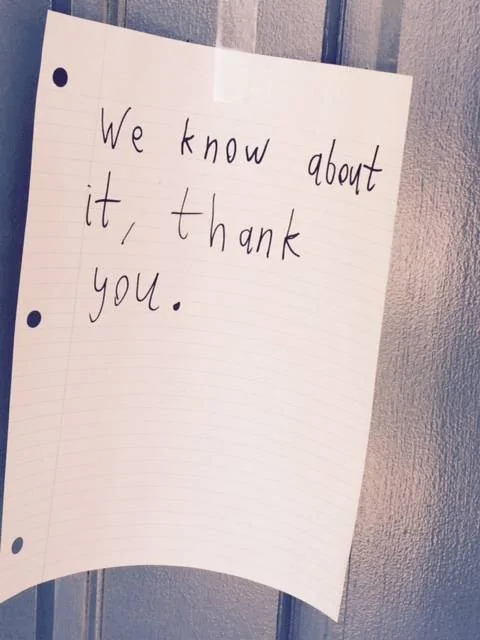 We know about
it, thank
you.